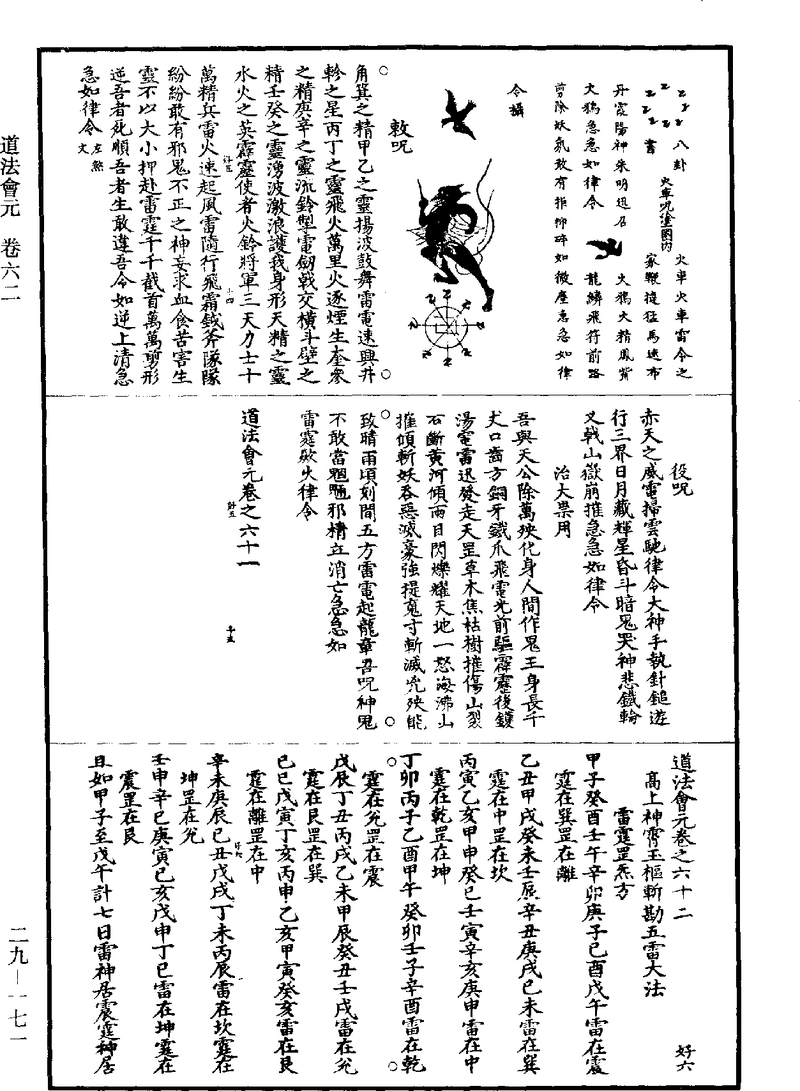 道法會元 卷六二
八卦
書
火車咒塗圖內
火車火車雷令之
家鞭撻猛馬速布
丹霞陽神朱明迅居
火鴉火精鳳觜
火鴉急急如律令
龍鱗飛符前路
剪除妖氛敢有拒抑碎如微塵急急如律
令攝
敕咒
角箕之精甲乙之靈揚波鼓舞雷電速興井
軫之星丙丁之靈飛火萬里火逐煙生奎參
之精庚辛之靈流鈴掣電劒戟交橫斗壁之
精壬癸之靈湧波激浪護我身形天精之靈
水火之英霹靂使者火鈴將軍三天力士十
萬精兵雷火速起風雷隨行飛霜鐵斧隊隊
紛紛敢有邪鬼不正之神妄求血食苦害生
靈不以大小押赴雷霆千千截首萬萬剪形
逆吾者死順吾者生敢違吾令如逆上清急
急如律令
役咒
赤天之威電掃雲馳律令大神手執針鎚遊
行三界日月藏輝星昏斗暗鬼哭神悲鐵輪
叉戟山嶽崩摧急急如律令
治大祟用
吾與天公除萬殃化身人間作鬼王身長千
丈口齒方銅牙鐵爪飛電光前驅霹靂後鑊
湯電雷迅發走天罡草木焦枯樹摧傷山裂
石斷黃河傾兩目閃爍耀天地一怒海沸山
摧傾斬妖吞惡滅豪強提鬼寸斬滅兇殃能
致晴雨頃刻間五方雷電起龍章吾咒神鬼
不敢當魍魎邪精立消亡急急如
雷霆歘火律令
道法會元卷之六十一
道法會元卷之六十二
好六
高上神霄玉樞斬勘五雷大法
雷霆罡炁方
甲子癸酉壬午辛卯庚子己酉戊午雷在震
霆在巽罡在離
乙丑甲戌癸未壬辰辛丑庚戌己未雷在巽
霆在中罡在坎
丙寅乙亥甲申癸巳壬寅辛亥庚申雷在中
霆在乾罡在坤
丁卯丙子乙酉甲午癸卯壬子辛酉雷在乾
霆在兌罡在震
戊辰丁丑丙戌乙未甲辰癸丑壬戌雷在兌
霆在艮罡在巽
己巳戊寅丁亥丙申乙亥甲寅癸亥雷在艮
霆在離罡在中
辛未庚辰己丑戊戌丁未丙辰雷在坎霆在
坤罡在兌
壬申辛巳庚寅己亥戊申丁巳雷在坤霆在
震罡在艮
且如甲子至戊午計七日雷神居震霆神居
二九－一七一